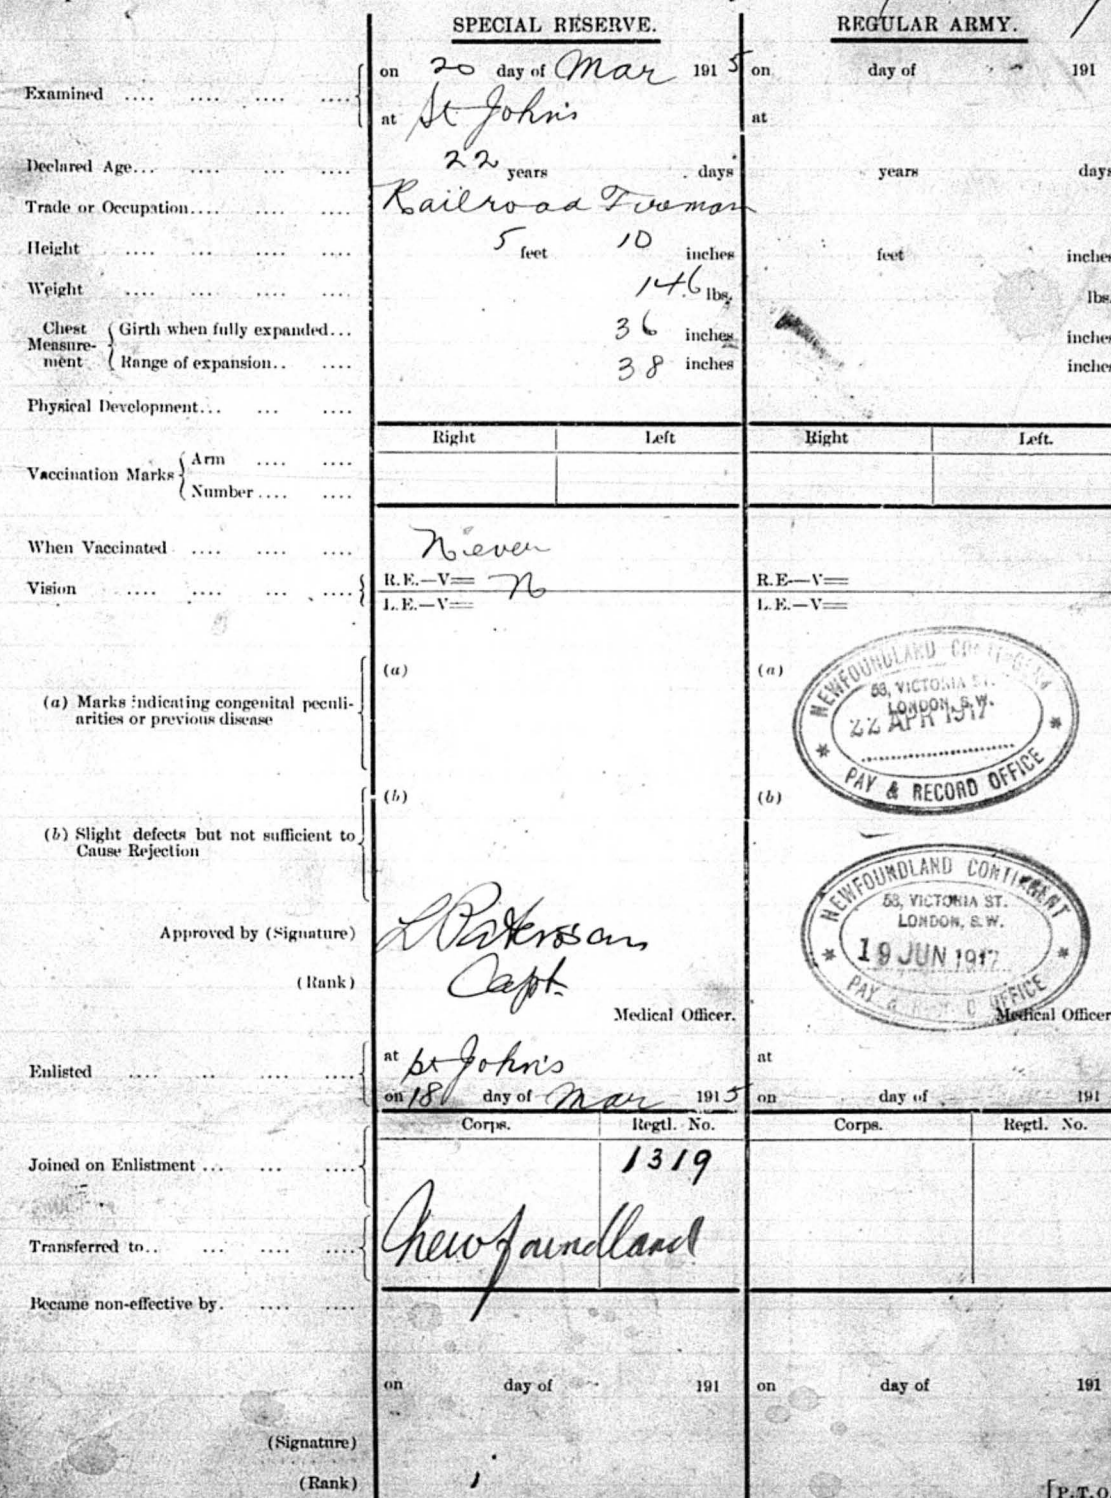 SPECIAL RESERVE. REGULAR ARMY.
Examined .... .... .... .... on 20 day of Mar 1915 on day of 191
at St John's at
Declared Age... .... .... .... 22 years days years days
Trade or Occupation.... .... .... Railroad Fireman
Height .... .... .... .... 5 feet 10 inches feet inches
Weight .... .... .... .... 146 lbs. lbs.
Chest Measure-ment Girth when fully expanded... 36 inches inches
Range of expansion.. .... 38 inches inches
Physical Development... ... ....
Right Left Right Left.
Vaccination Marks Arm .... ....
Number .... ....
When Vaccinated .... .... .... Never
Vision .... .... ... .... R.E.—V= N R.E—V=
L.E.—V= L.E.—V=
(a) Marks indicating congenital peculi-
arities or previous disease
(a) (a)
NEWFOUNDLAND CONTINGENT
53, VICTORIA ST.
LONDON, S.W.
22 APR 1917
* PAY & RECORD OFFICE *
(b) (b)
(b) Slight defects but not sufficient to
Cause Rejection
NEWFOUNDLAND CONTINGENT
53, VICTORIA ST.
LONDON, S.W.
19 JUN 1917
* PAY & RECORD OFFICE *
Approved by (Signature) L Paterson
(Rank) Capt.
Medical Officer. Medical Officer
Enlisted .... .. .... .... at St John's at
on 18 day of Mar 1915 on day of 191
Corps. Regtl. No. Corps. Regtl. No.
Joined on Enlistment ... ... .... 1319
Transferred to.. ... .... .... Newfoundland
Became non-effective by. .... ....
on day of 191 on day of 191
(Signature)
(Rank)
[P.T.O.